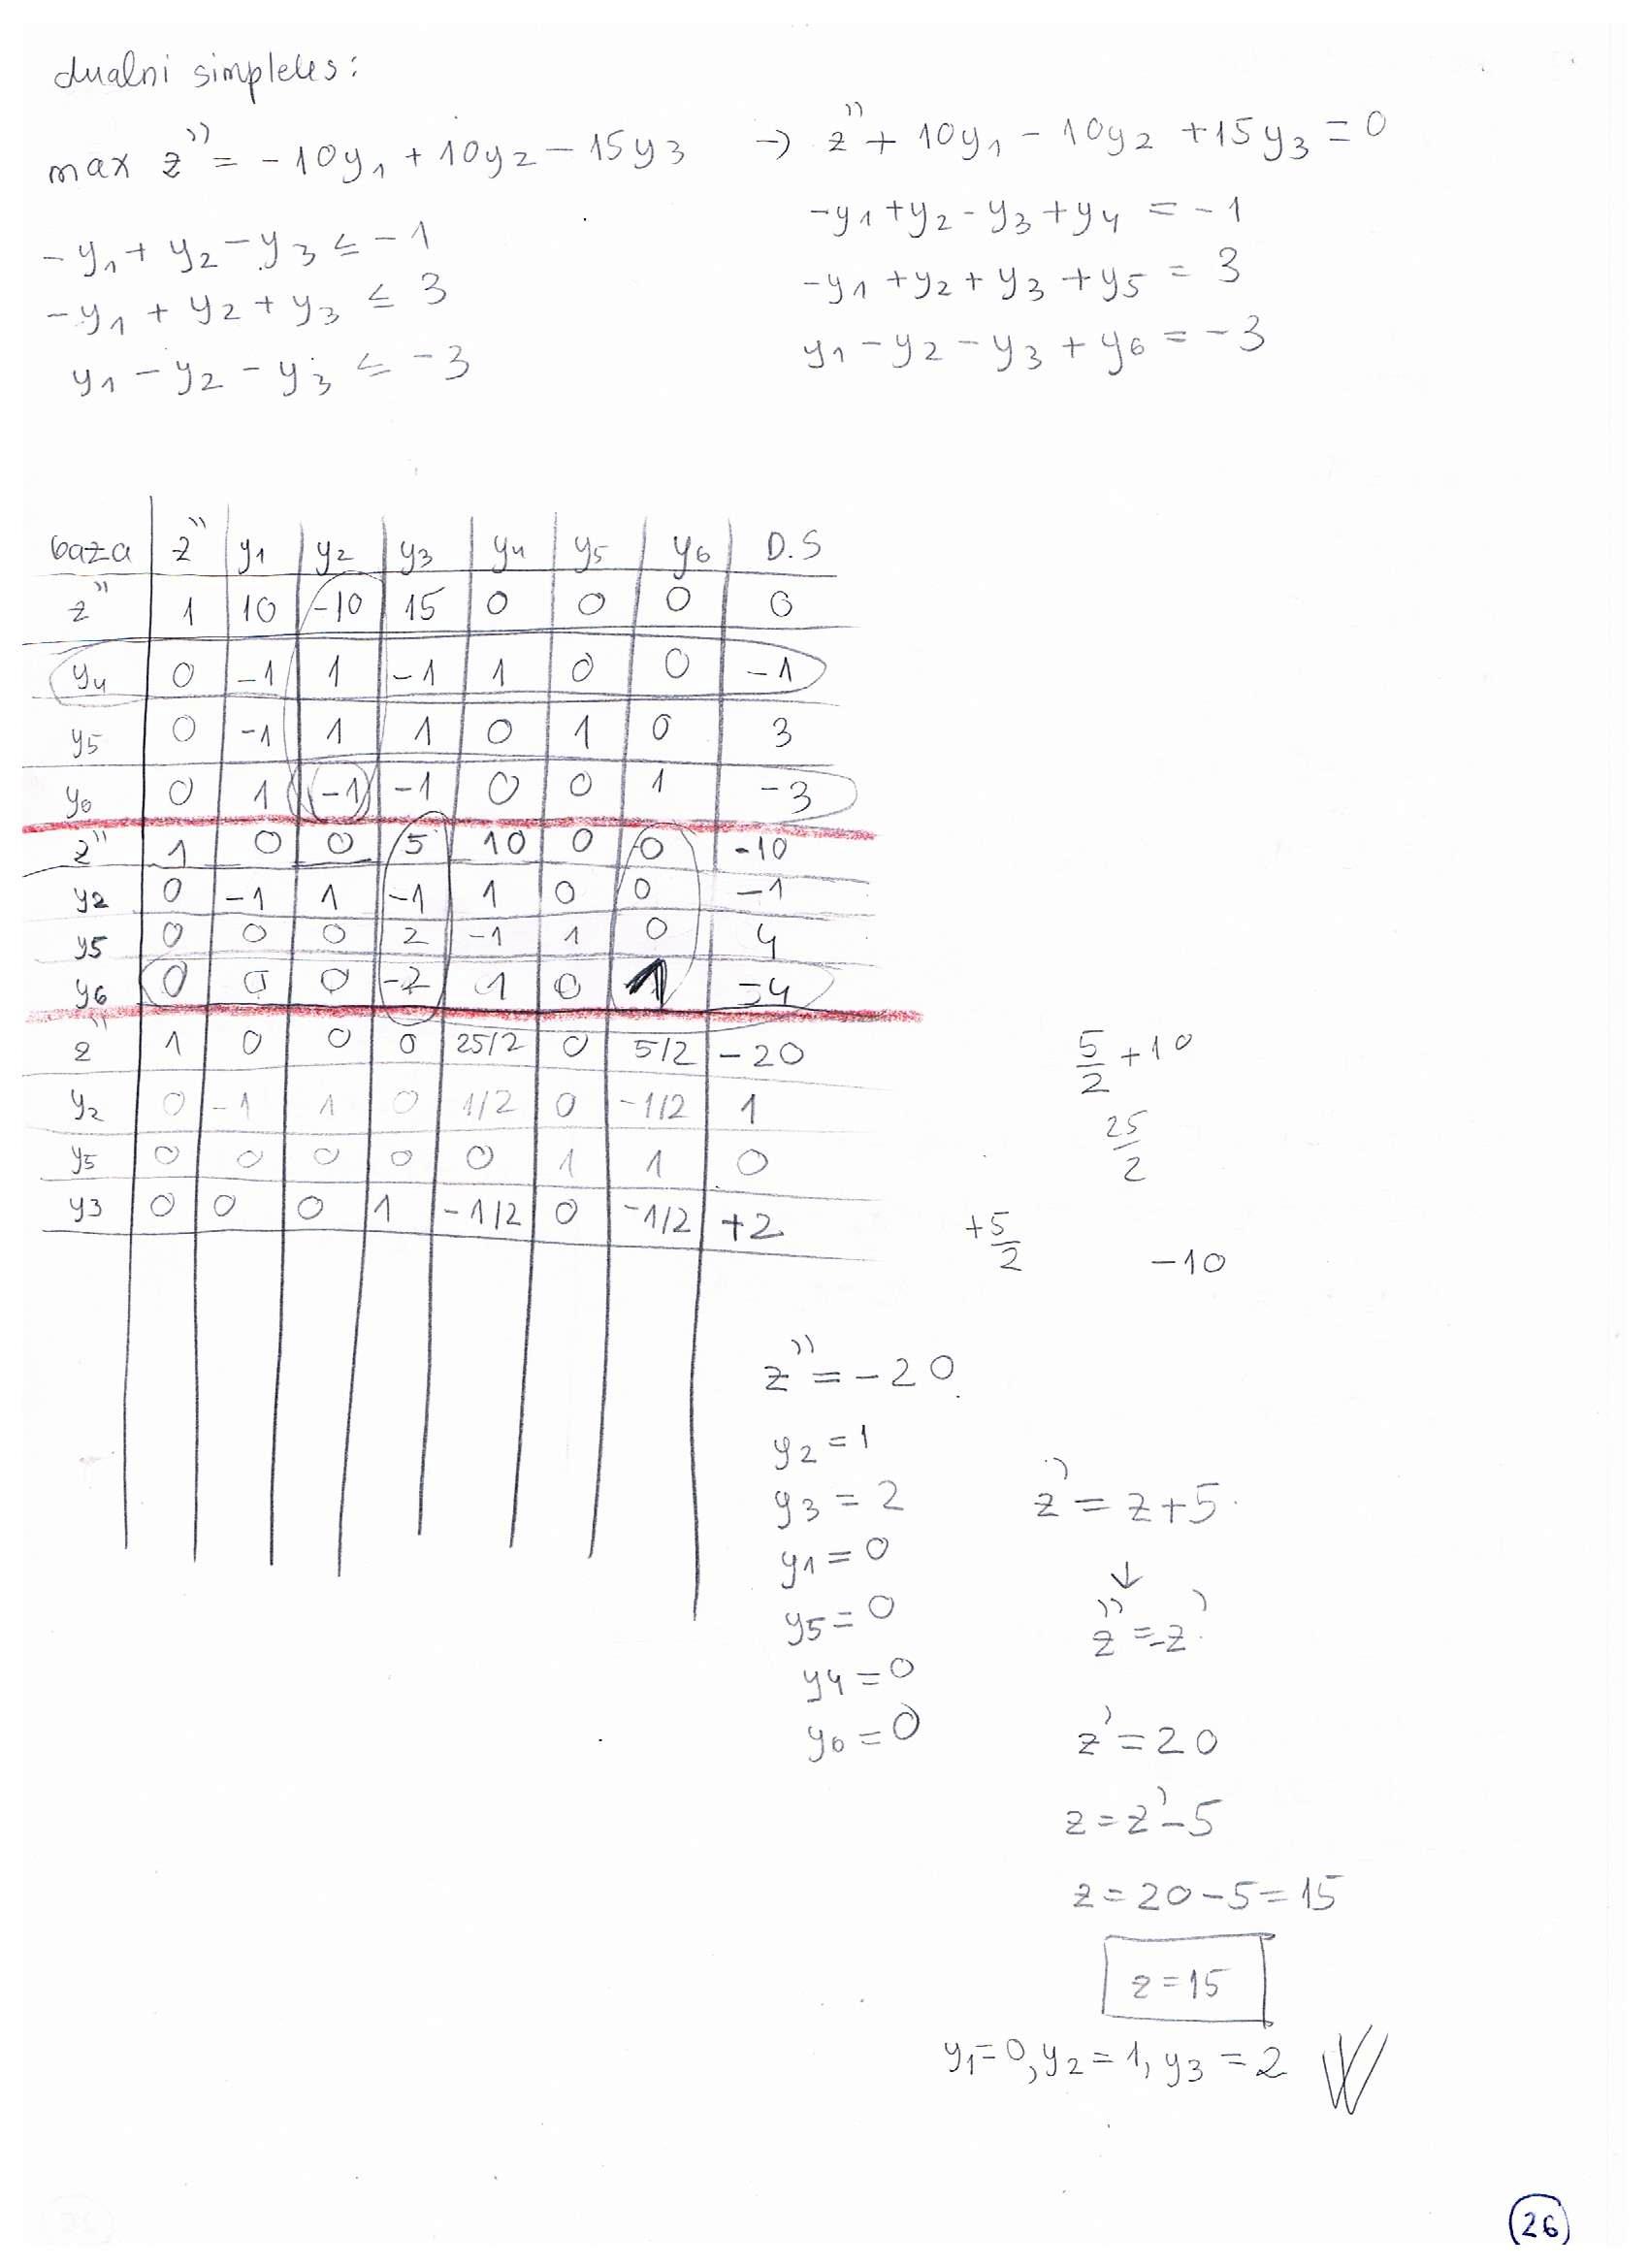 dualni simpleks:
max z'' = -10y1 + 10y2 - 15y3 → z'' + 10y1 - 10y2 + 15y3 = 0
-y1 + y2 - y3 ≤ -1
-y1 + y2 + y3 ≤ 3
y1 - y2 - y3 ≤ -3
-y1 + y2 - y3 + y4 = -1
-y1 + y2 + y3 + y5 = 3
y1 - y2 - y3 + y6 = -3
baza z'' y1 y2 y3 y4 y5 y6 D.S
z'' 1 10 -10 15 0 0 0 0
y4 0 -1 1 -1 1 0 0 -1
y5 0 -1 1 1 0 1 0 3
y6 0 1 -1 -1 0 0 1 -3
z'' 1 0 0 5 10 0 0 -10
y2 0 -1 1 -1 1 0 0 -1
y5 0 0 0 2 -1 1 0 4
y6 0 0 0 -2 1 0 1 -4
z'' 1 0 0 0 25/2 0 5/2 -20
y2 0 -1 1 0 1/2 0 -1/2 1
y5 0 0 0 0 0 1 1 0
y3 0 0 0 1 -1/2 0 -1/2 +2
5/2 + 10
25/2
+5/2 -10
z'' = -20
y2 = 1
y3 = 2
y1 = 0
y5 = 0
y4 = 0
y6 = 0
z' = z + 5
↓
z'' = -z'
z' = 20
z = z' - 5
z = 20 - 5 = 15
z = 15
y1 = 0, y2 = 1, y3 = 2
26